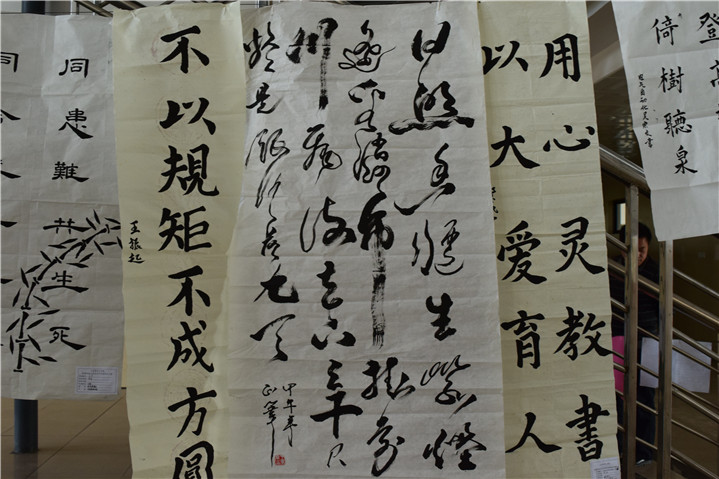 倚樹聽泉
用心灵教书
以大爱育人
日照香爐生紫煙
遥看瀑布挂前
川飛流直下三千尺
疑是銀河落九天
甲午年
不以規矩不成方圓
王振起
同患難共生死